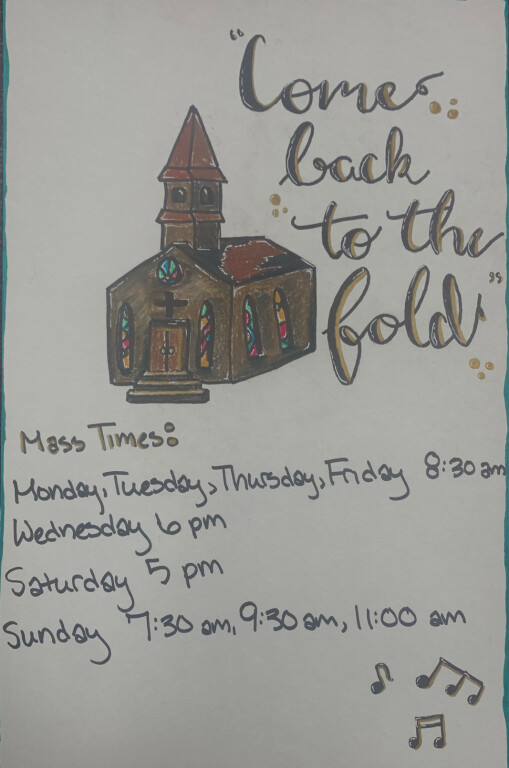 "Come
back
to the
fold"
Mass Times:
Monday, Tuesday, Thursday, Friday 8:30 am
Wednesday 6 pm
Saturday 5 pm
Sunday 7:30 am, 9:30 am, 11:00 am